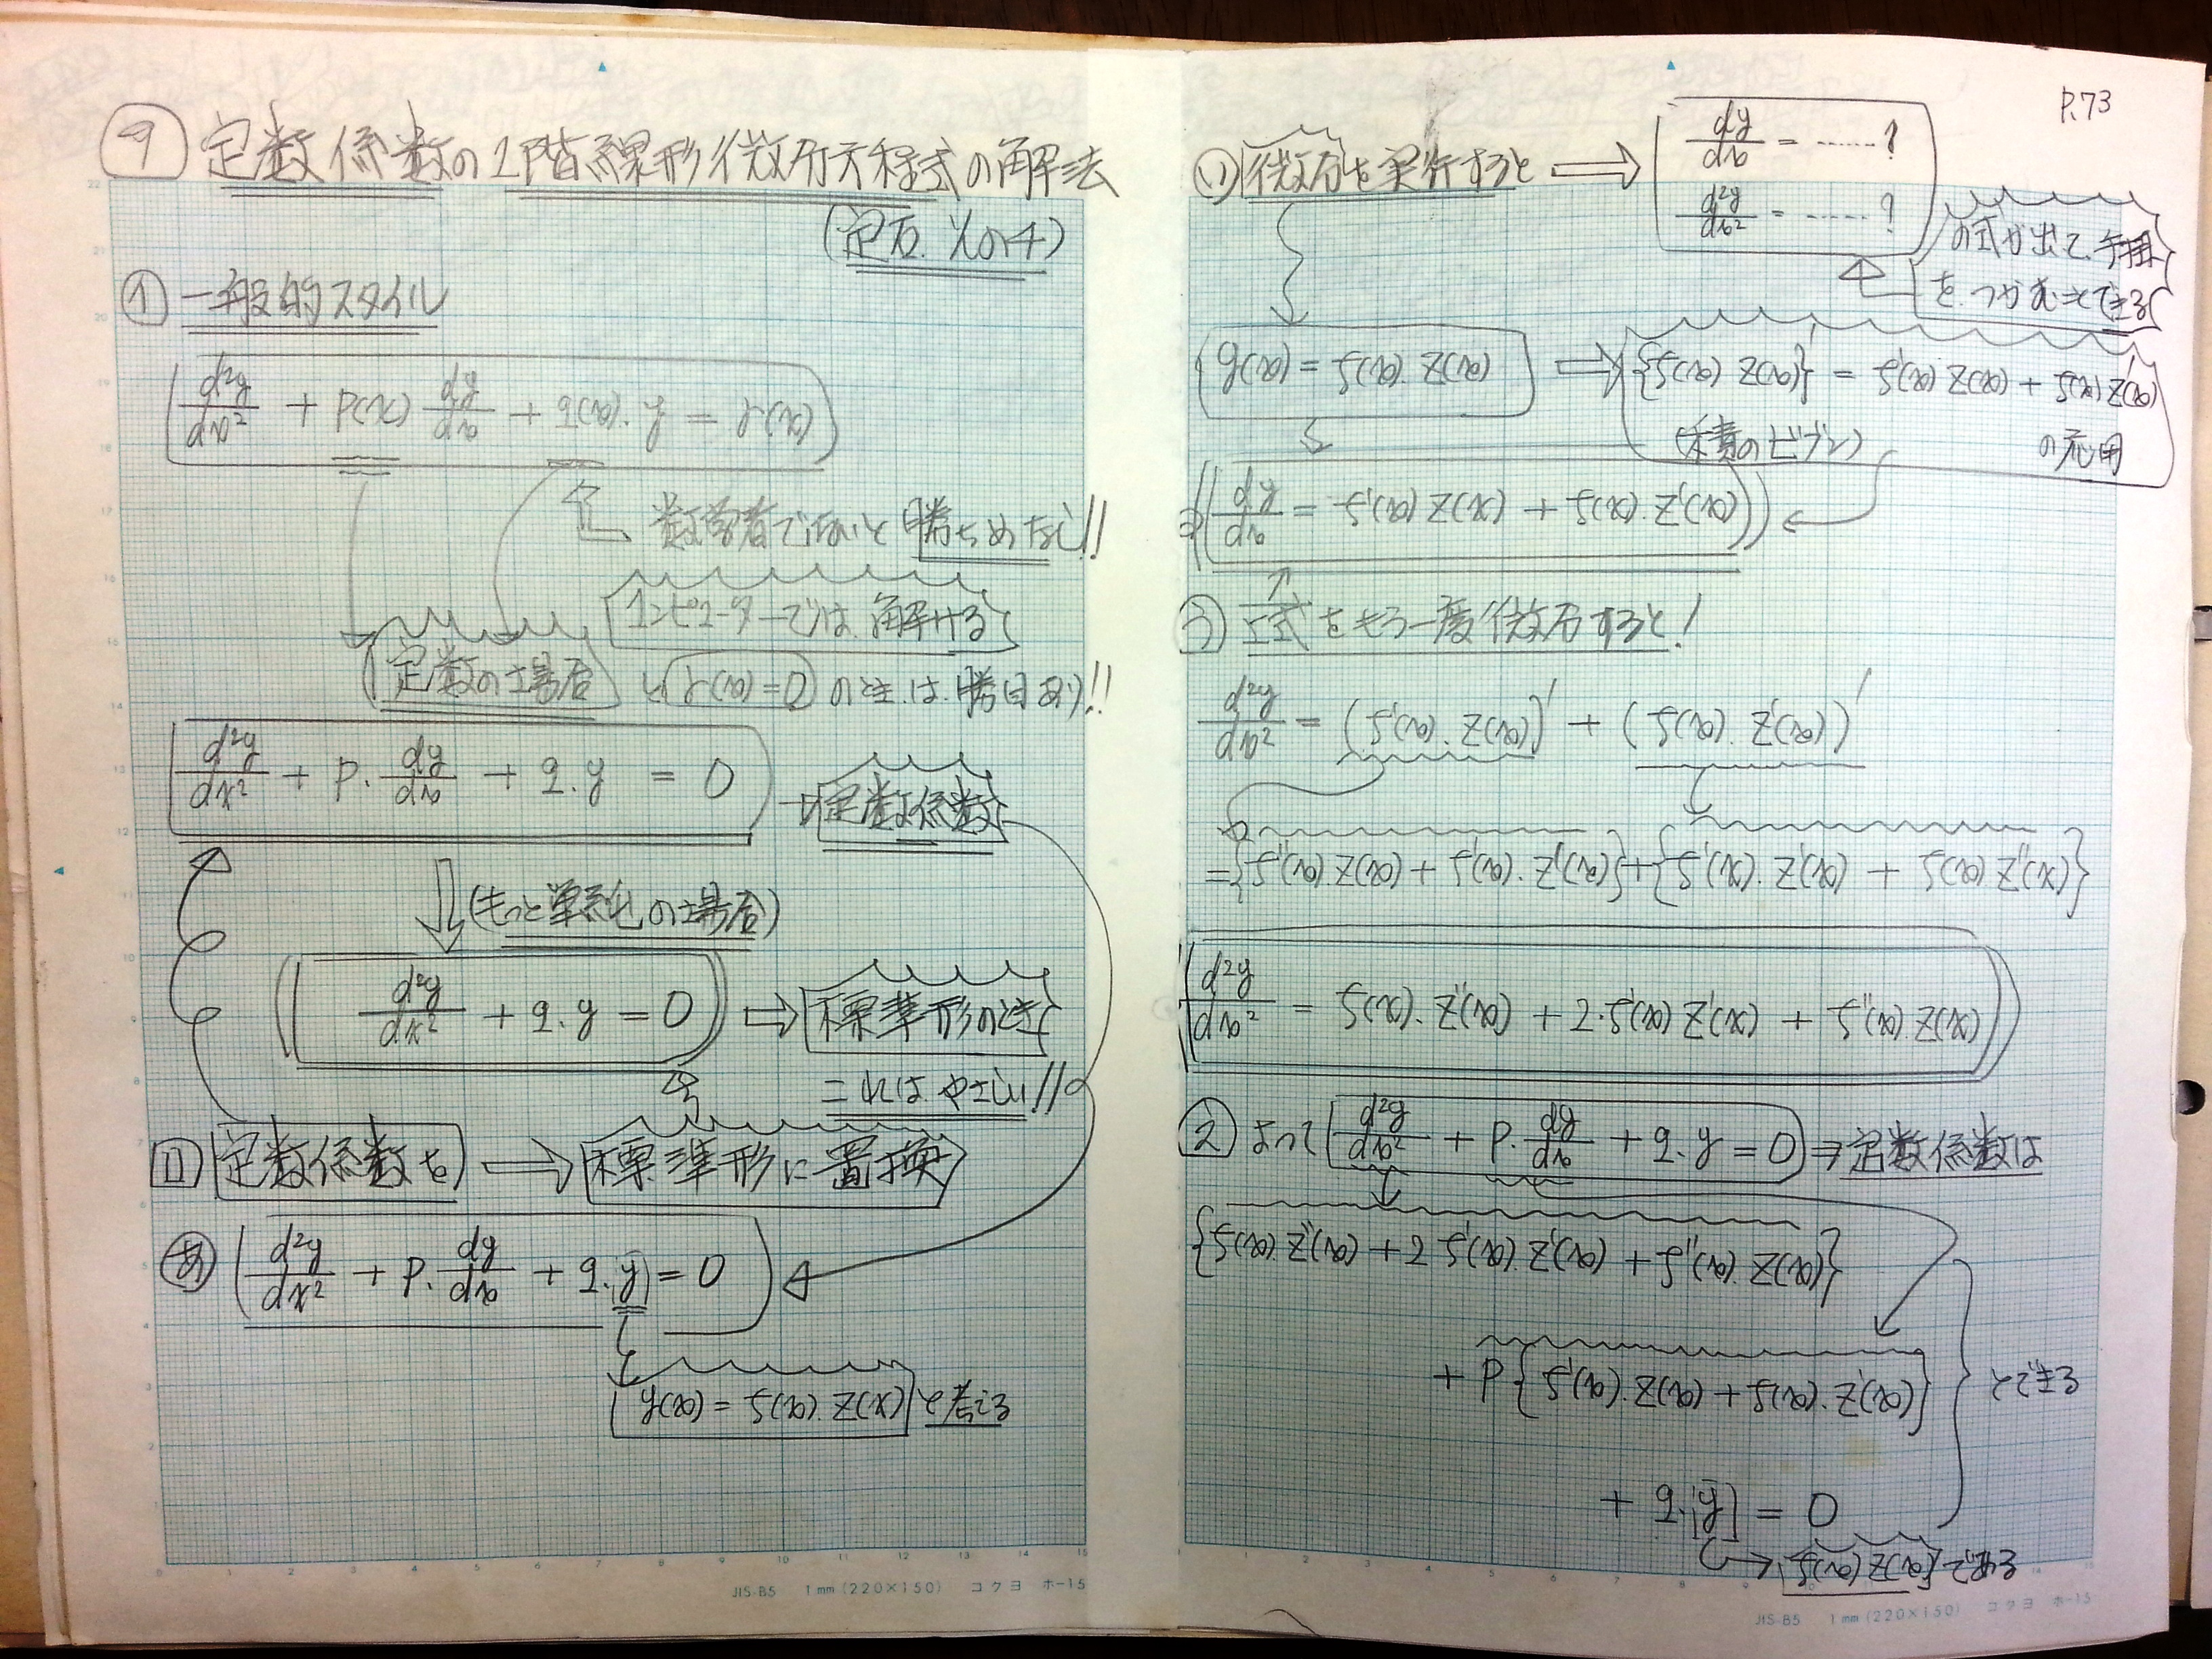 定数係数の2階線形微分方程式の解法
① 一般的スタイル
d²y/dx² + p(x) dy/dx + q(x)・y = r(x)
数学者でないと勝ちめなし!!
コンピューターでは解ける
定数の場合
r(x)=0 のときは勝目あり!!
d²y/dx² + p・dy/dx + q・y = 0
定数係数
(もっと単純の場合)
d²y/dx² + q・y = 0 ⇒ 標準形のとき
これはやさしい!!
定数係数を ⇒ 標準形に置換
あ d²y/dx² + p・dy/dx + q・y = 0
y(x) = ζ(x)・z(x) と考える
P.73
い 微分を実行すると ⇒ dy/dx = ……?
d²y/dx² = ……?
の式が出て、手掛
をつかむことできる
y(x) = ζ(x)・z(x) ⇒ {ζ(x) z(x)}' = ζ'(x) z(x) + ζ(x) z'(x)
(積のビブン) の応用
dy/dx = ζ'(x) z(x) + ζ(x)・z'(x)
う 上式をもう一度微分すると!
d²y/dx² = (ζ'(x)・z(x))' + (ζ(x)・z'(x))'
= {ζ''(x)・z(x) + ζ'(x)・z'(x)} + {ζ'(x)・z'(x) + ζ(x) z''(x)}
d²y/dx² = ζ(x)・z''(x) + 2・ζ'(x) z'(x) + ζ''(x)・z(x)
② よって d²y/dx² + p・dy/dx + q・y = 0 ⇒ 定数係数は
{ζ(x)・z''(x) + 2 ζ'(x)・z'(x) + ζ''(x)・z(x)}
+ p{ζ'(x)・z(x) + ζ(x)・z'(x)}
とできる
+ q・[y] = 0
ζ(x) z(x) である
JIS-B5 1mm (220×150) コクヨ ホ-15
JIS-B5 1mm (220×150) コクヨ ホ-15